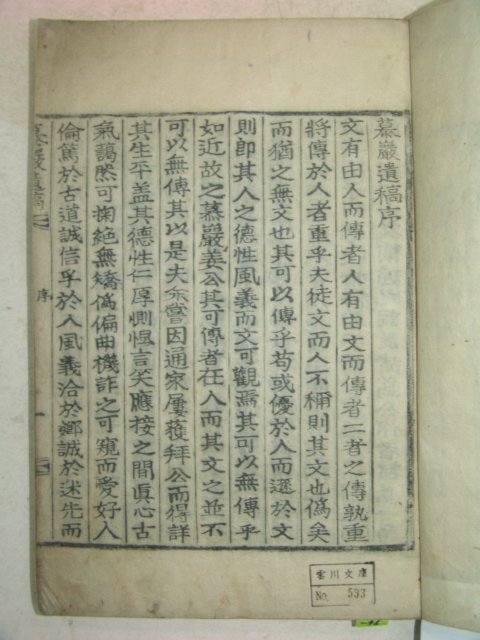 慕巖遺稿序
文有由人而傳者人有由文而傳者二者之傳孰重
將傳於人者重乎夫徒文而人不稱則其文也僞矣
而猶之無文也其可以傳乎苟或優於人而遜於文
則卽其人之德性風義而文可觀焉其可以無傳乎
如近故之慕巖姜公其可傳者在人而其文之並不
可以無傳其以是夫余嘗因通家屢獲拜公而得詳
其生平盖其德性仁厚惻怛言笑應接之間眞心古
氣藹然可掬絶無矯僞偏曲機詐之可窺而愛好人
倫篤於古道誠信孚於人風義洽於鄕誠於述先而
慕巖遺稿
序
雲川文庫
No. 593